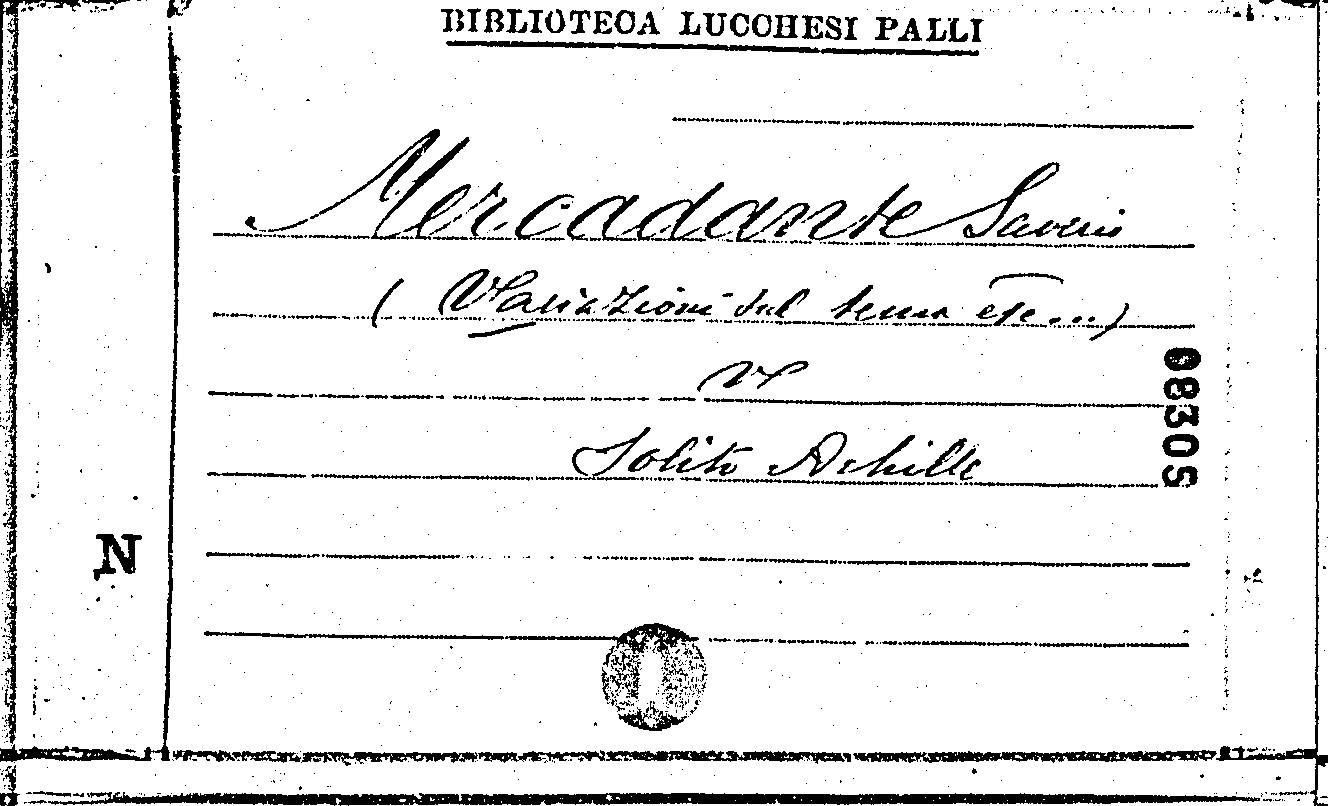 BIBLIOTECA LUCCHESI PALLI
Mercadante Saverio
(Variazioni sul tema etc...)
V
Solito Achille
08305
N